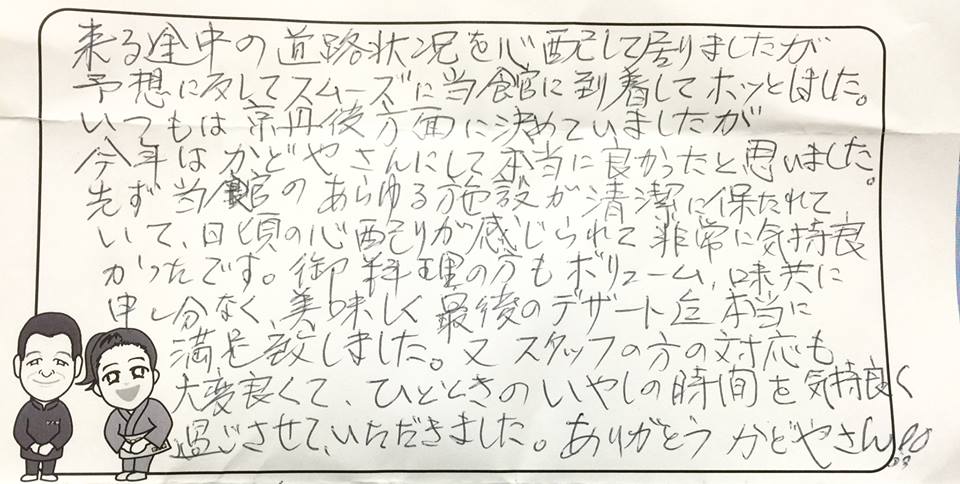 来る途中の道路状況を心配して居りましたが
予想に反してスムーズに当館に到着してホッとしました。
いつもは京丹後方面に決めていましたが
今年はかどやさんにして本当に良かったと思いました。
先ず当館のあらゆる施設が清潔に保たれて
いて、日頃の心配りが感じられて非常に気持良
かったです。御料理の方もボリューム、味共に
申し分なく美味しく最後のデザート迄本当に
満足致しました。又スタッフの方の対応も
大変良くて、ひとときのいやしの時間を気持良く
過ごさせていただきました。ありがとうかどやさん